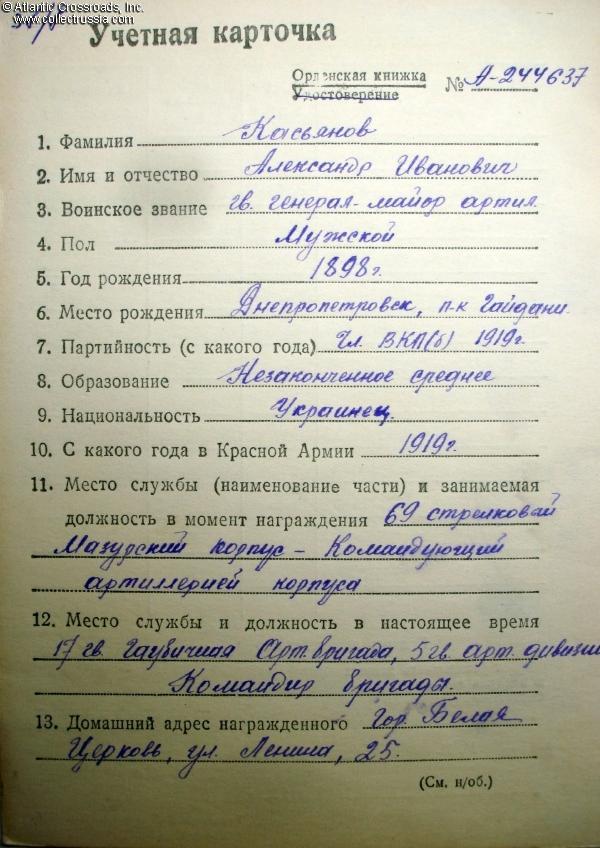 © Atlantic Crossroads, Inc.
www.collectrussia.com
Учетная карточка
Орденская книжка
Удостоверение № А-244637
1. Фамилия Касьянов
2. Имя и отчество Александр Иванович
3. Воинское звание гв. генерал-майор артил.
4. Пол Мужской
5. Год рождения 1898г.
6. Место рождения Днепропетровск, п-к Гайдани.
7. Партийность (с какого года) Чл. ВКП(б) 1919г.
8. Образование Незаконченное среднее
9. Национальность Украинец
10. С какого года в Красной Армии 1919г.
11. Место службы (наименование части) и занимаемая
должность в момент награждения 69 стрелковый
Мазурский корпус - Командующий
артиллерией корпуса
12. Место службы и должность в настоящее время
17 гв. Гаубичная Арт. бригада, 5 гв. арт. дивизии
Командир бригады.
13. Домашний адрес награжденного Гор. Белая
Церковь, ул. Ленина, 25.
(См. н/об.)